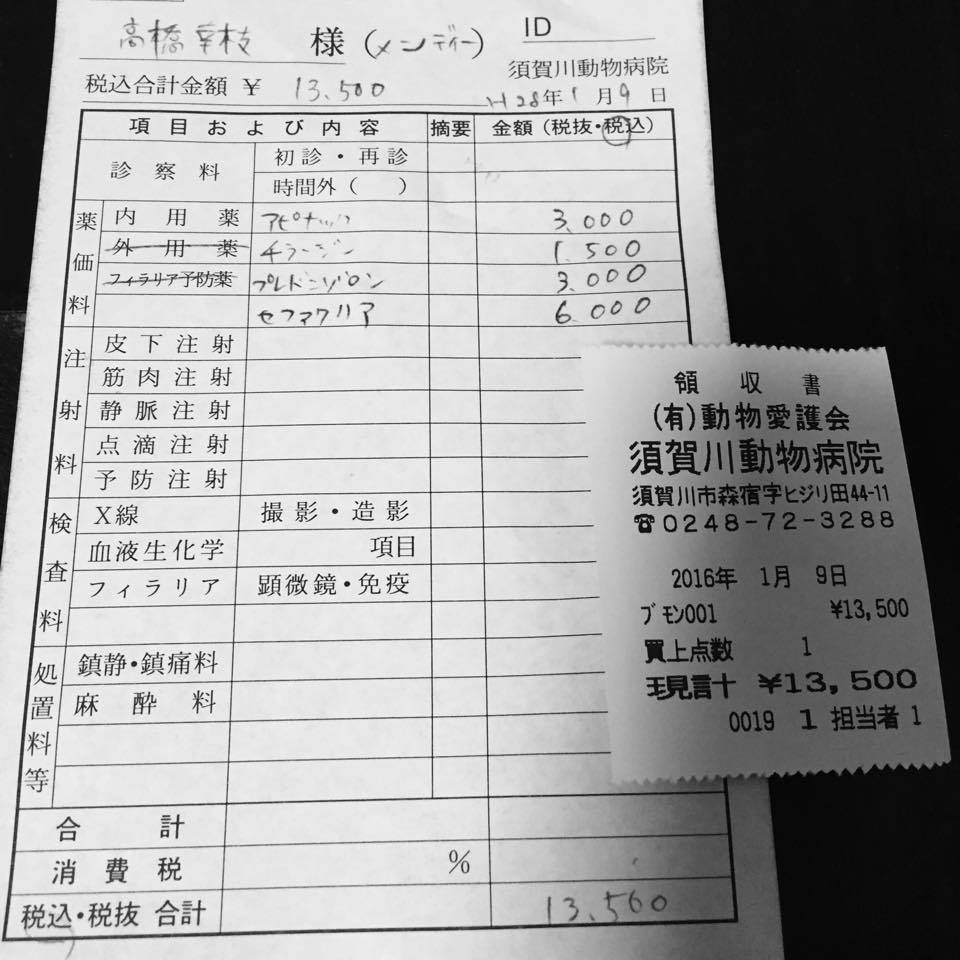 高橋幸枝 様(メンディー) ID
須賀川動物病院
税込合計金額 ¥ 13.500
H28年1月9日
項目および内容 摘要 金額(税抜・税込)
診察料 初診・再診
時間外( )
薬価料 内用薬 アピナック 3.000
外用薬 チラージン 1.500
フィラリア予防薬 プレドニゾロン 3.000
セファクリア 6.000
注射料 皮下注射
筋肉注射
静脈注射
点滴注射
予防注射
検査料 X線 撮影・造影
血液生化学 項目
フィラリア 顕微鏡・免疫
処置料等 鎮静・鎮痛料
麻酔料
合計
消費税 %
税込・税抜 合計 13.500
領収書
(有)動物愛護会
須賀川動物病院
須賀川市森宿字ヒジリ田44-11
☎0248-72-3288
2016年 1月 9日
ブモン001 ¥13,500
買上点数 1
現計 ¥13,500
0019 1 担当者1